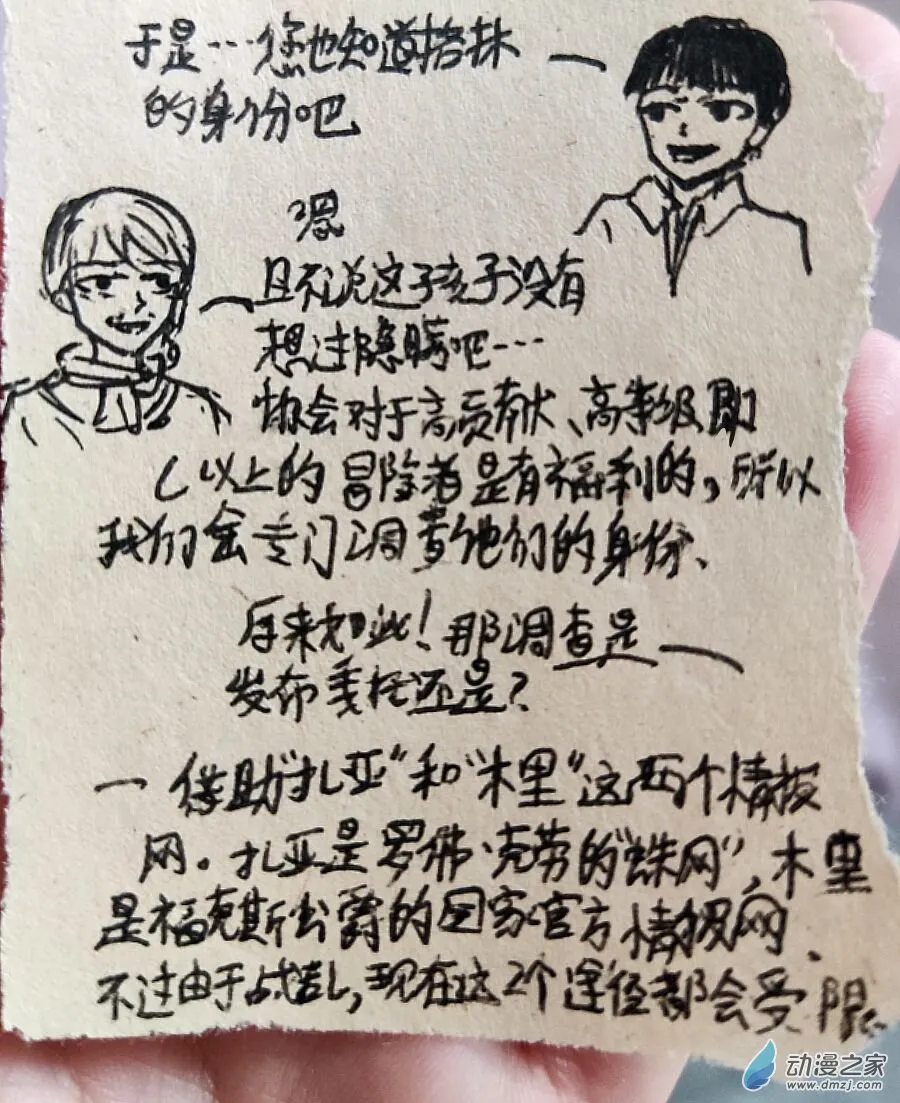 于是…您也知道捂抹
的身份吧
嗯
且不说这孩子没有
想过隐瞒吧…
协会对于高贡献、高等级即
C以上的冒险者是有福利的，所以
我们会专门调查他们的身份、
原来如此！那调查是
发布委托还是？
借助"扎亚"和"木里"这两个情报
网。扎亚是罗佛·克劳的"蛛网"，木里
是福克斯公爵的国家官方情报网、
不过由于战乱，现在这2个途径都会受限
动漫之家
www.dmzj.com